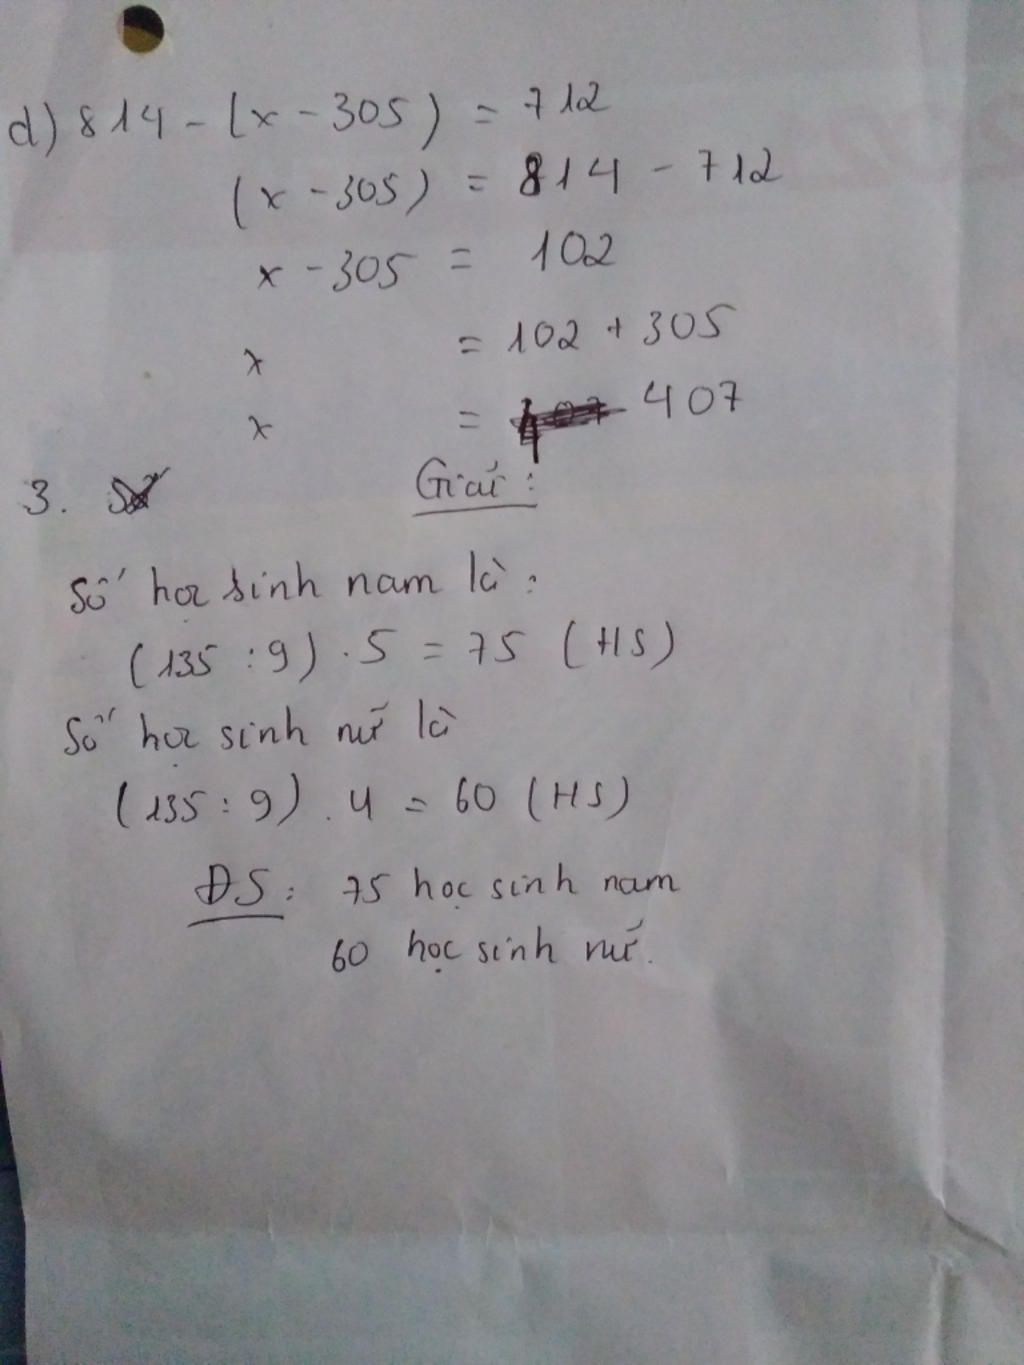 d) 814 - (x - 305) = 712
(x - 305) = 814 - 712
x - 305 = 102
x = 102 + 305
x = 407
3.
Giải:
Số học sinh nam là:
(135 : 9) . 5 = 75 (HS)
Số học sinh nữ là
(135 : 9) . 4 = 60 (HS)
ĐS: 75 học sinh nam
60 học sinh nữ.